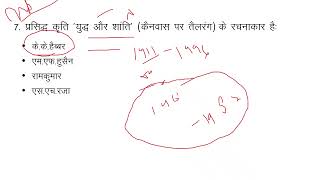 7. प्रसिद्ध कृति 'युद्ध और शांति' (कैनवास पर तैलरंग) के रचनाकार है:
• के.के.हैब्बर
1911 - 1996
• एम.एफ.हुसैन
• रामकुमार
• एस.एच.रजा